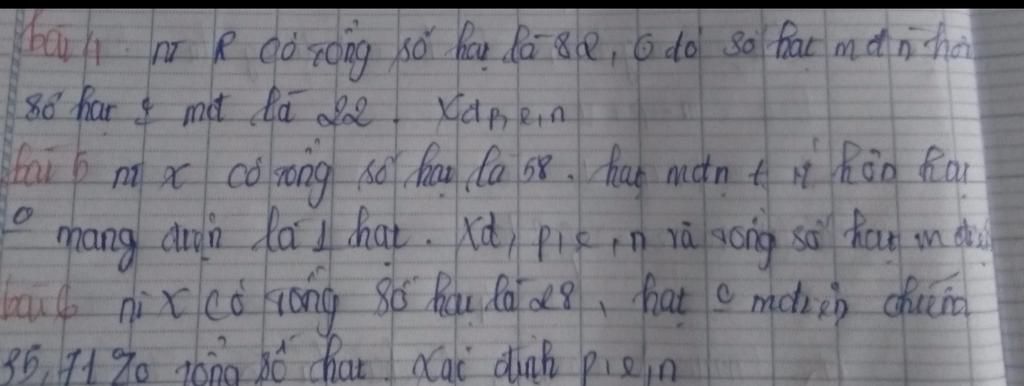 bài 4 nt R có tổng số hạt là 82, trong đó số hạt mđ n hơn
số hạt k mđ là 22. Xđ p, e, n
bài 5 nt x có tổng số hạt là 58. hạt mđn ít hơn hạt
0 mang điện là 1 hạt. Xđ, p, e, n và tổng số hạt m điện
bài 6 nt X có tổng số hạt là 28, hạt 0 mđiện chiếm
35,71% tổng số hạt Xác định p, e, n